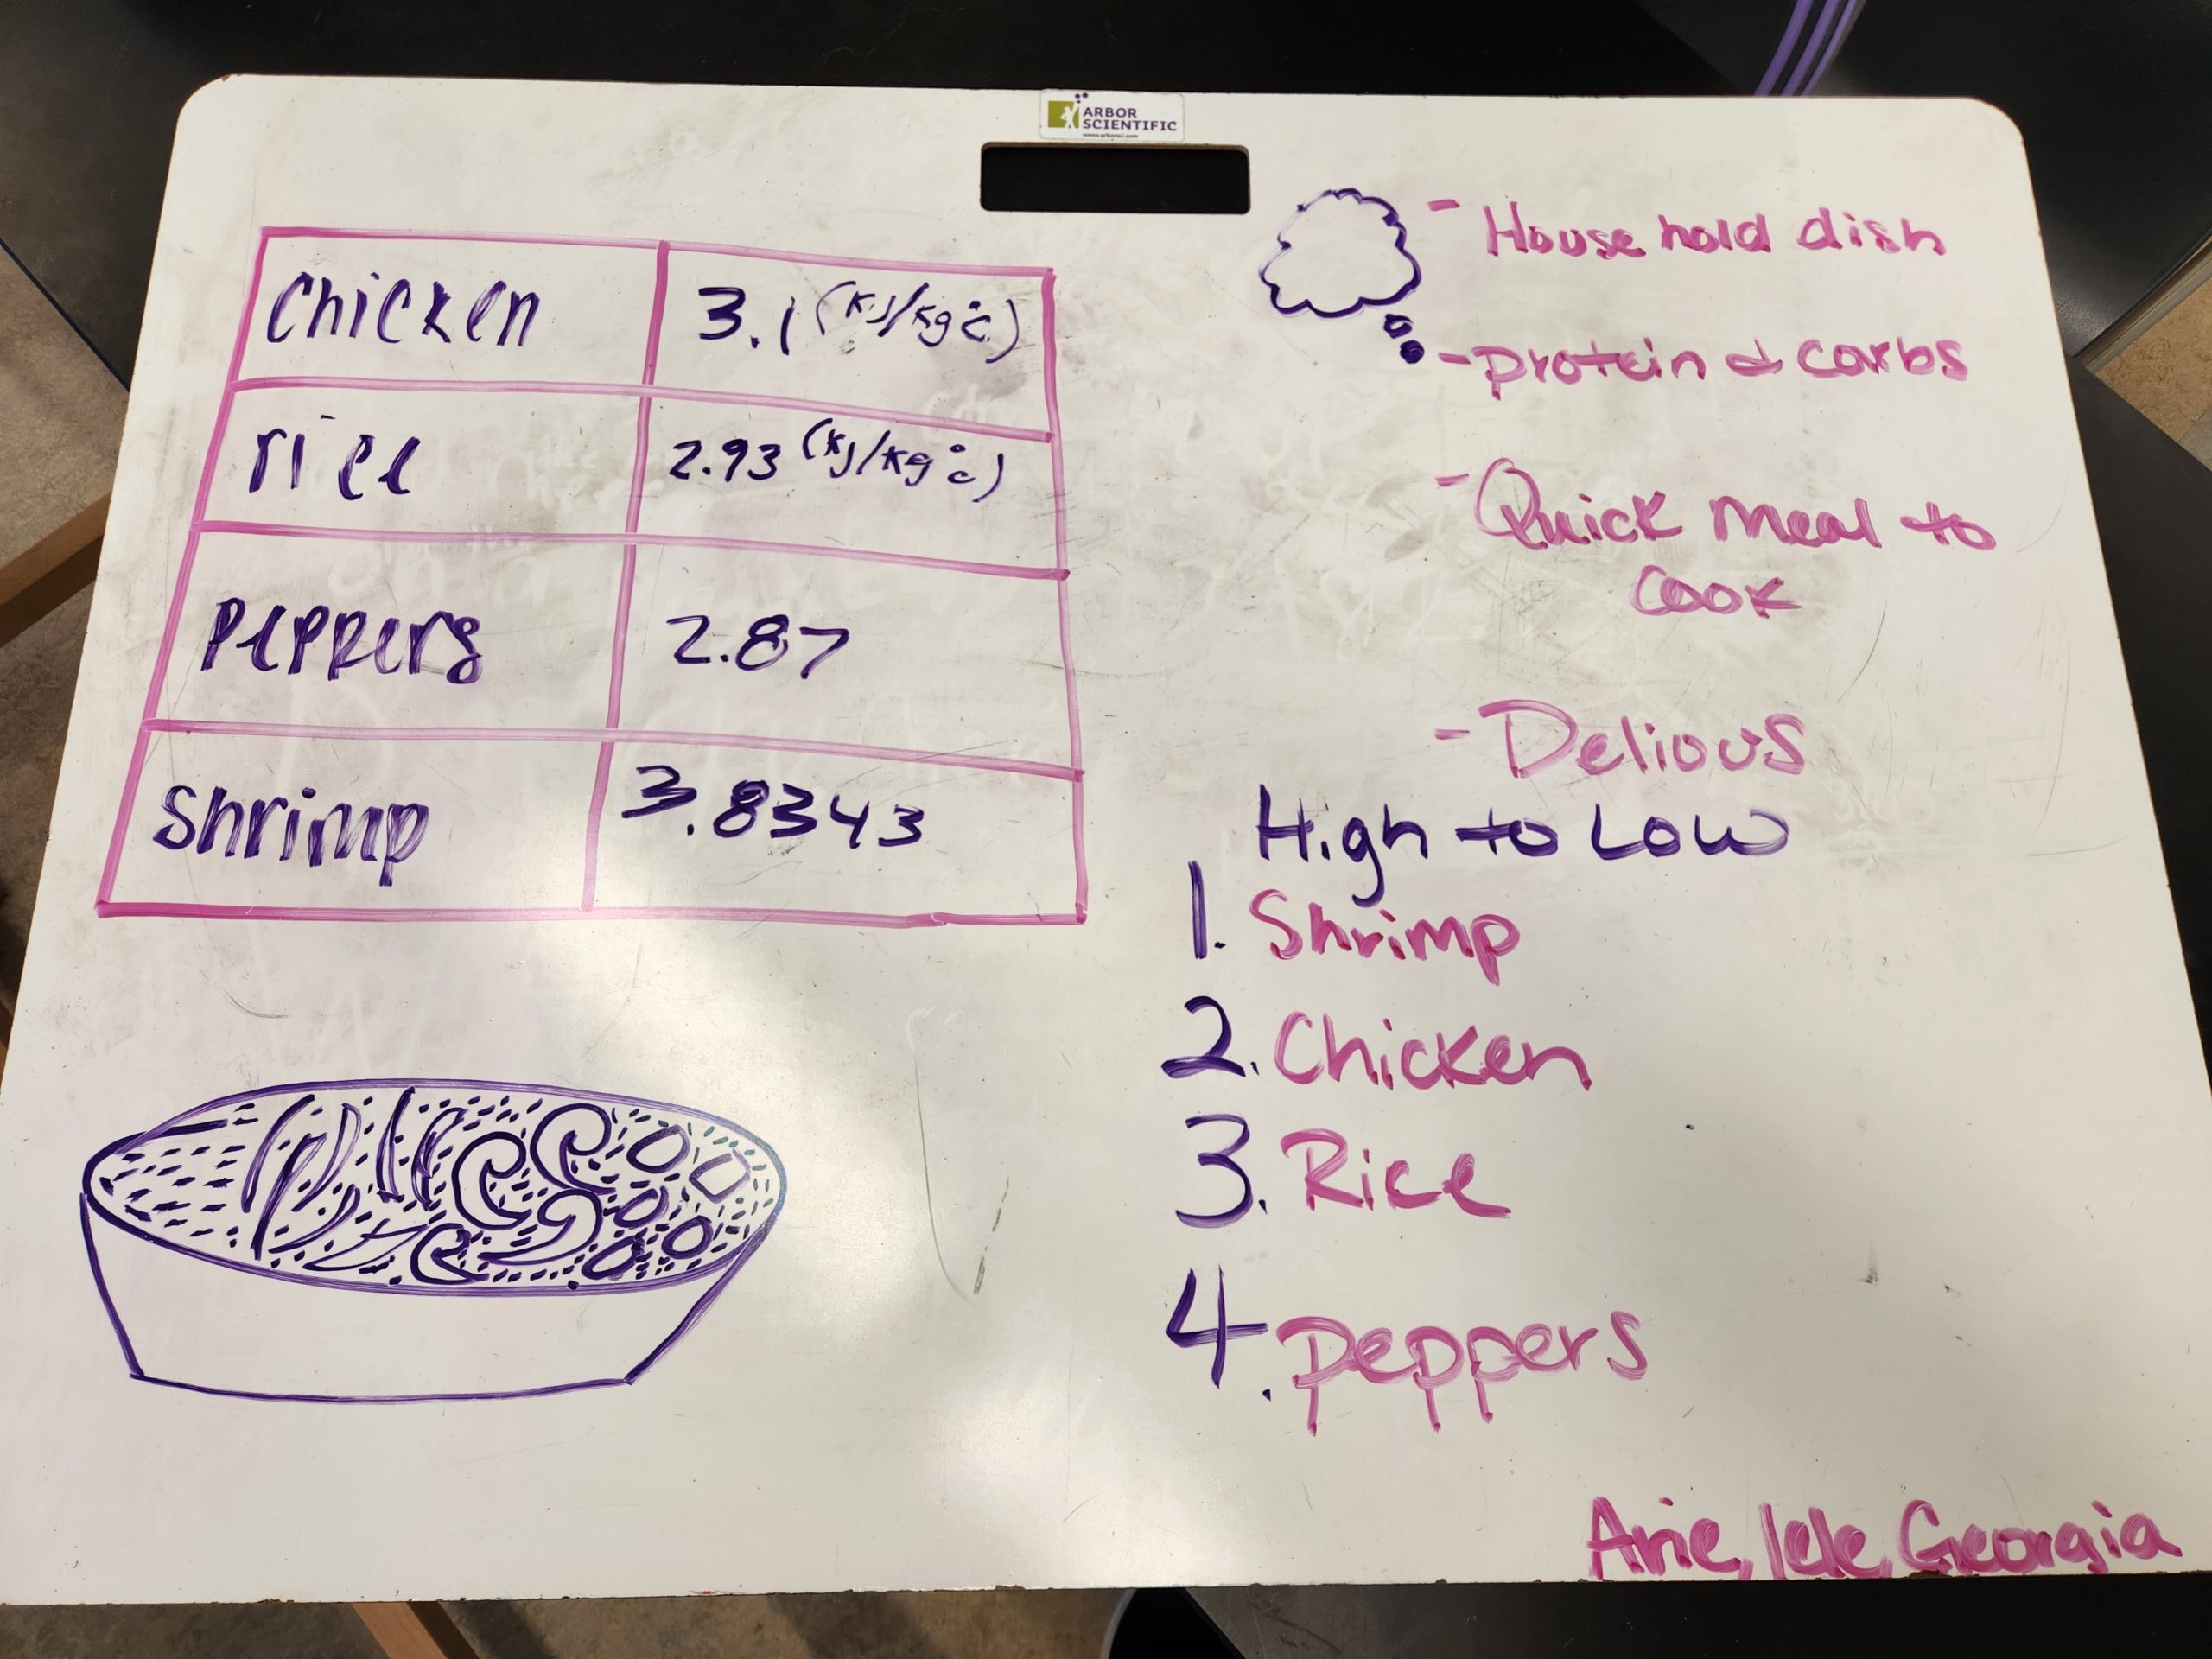 ARBOR
SCIENTIFIC
www.arborsci.com
chicken 3.1 (KJ/kg°c)
rice 2.93 (kJ/kg°c)
peppers 2.87
shrimp 3.8343
- House hold dish
- protein & carbs
- Quick meal to
cook
- Delious
High to Low
1. Shrimp
2. Chicken
3. Rice
4. peppers
Arie, lele, Georgia